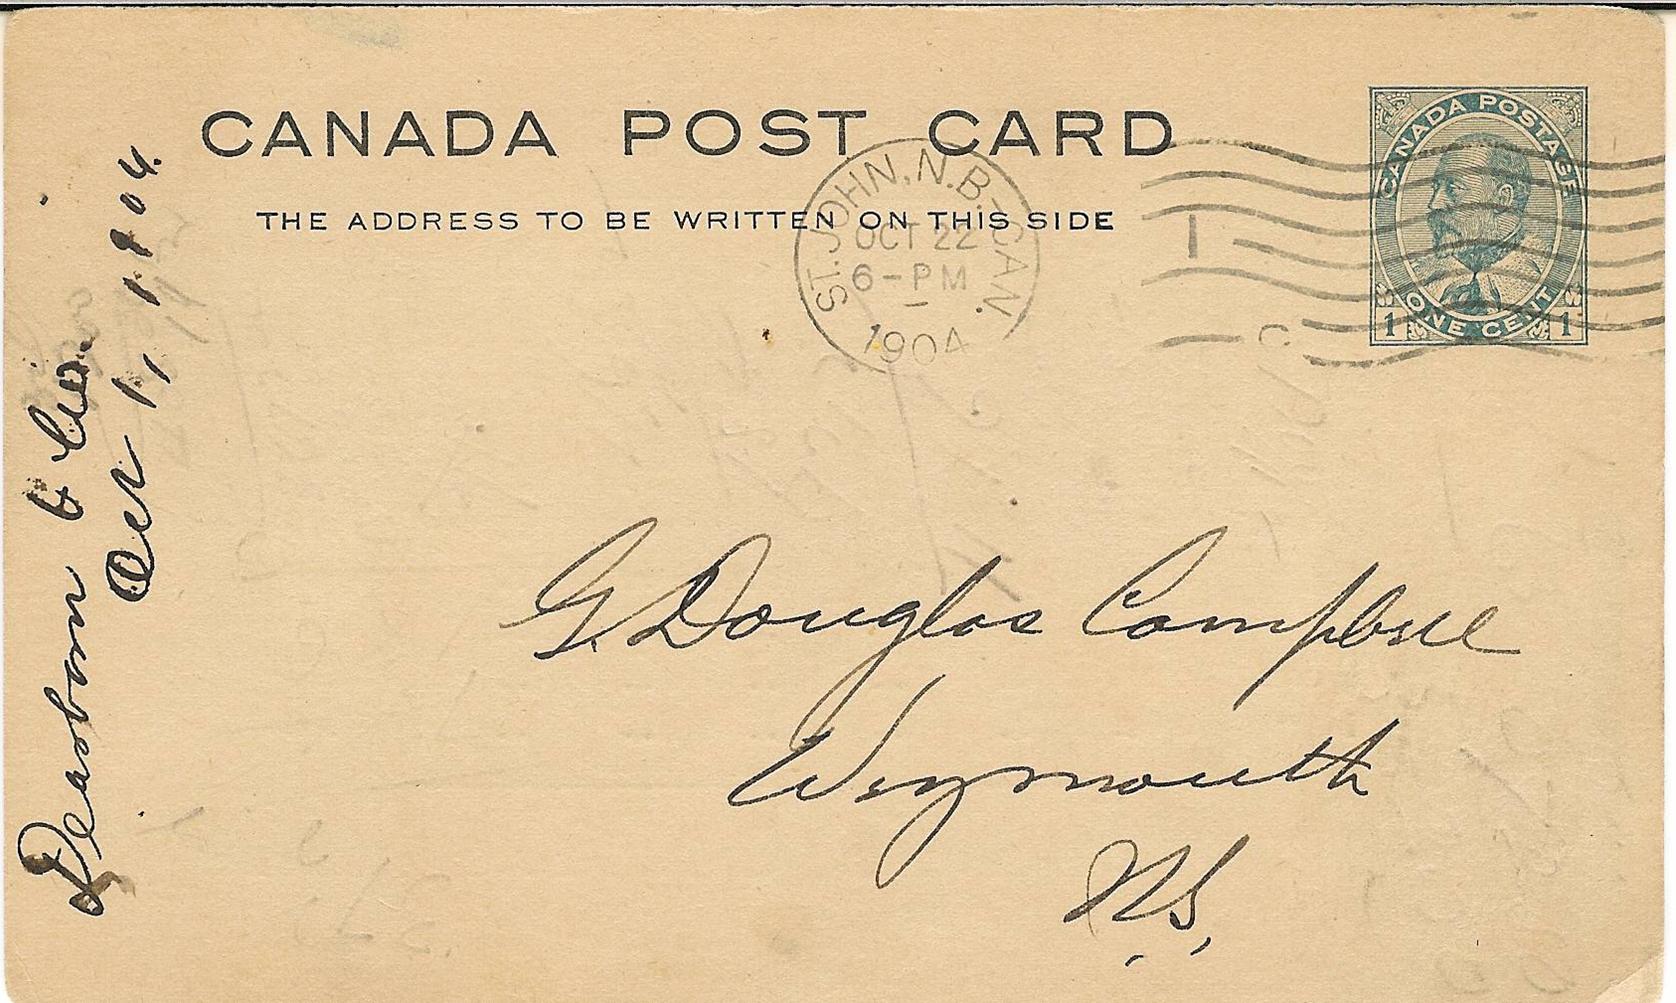 CANADA POST CARD
THE ADDRESS TO BE WRITTEN ON THIS SIDE
CANADA POSTAGE
ONE CENT
1 1
ST. JOHN, N.B.-CAN.
OCT 22
6-PM
1904
1
C
G. Douglas Campbell
Weymouth
N.S.
Dearborn & Co.
Oct 1, 1904.